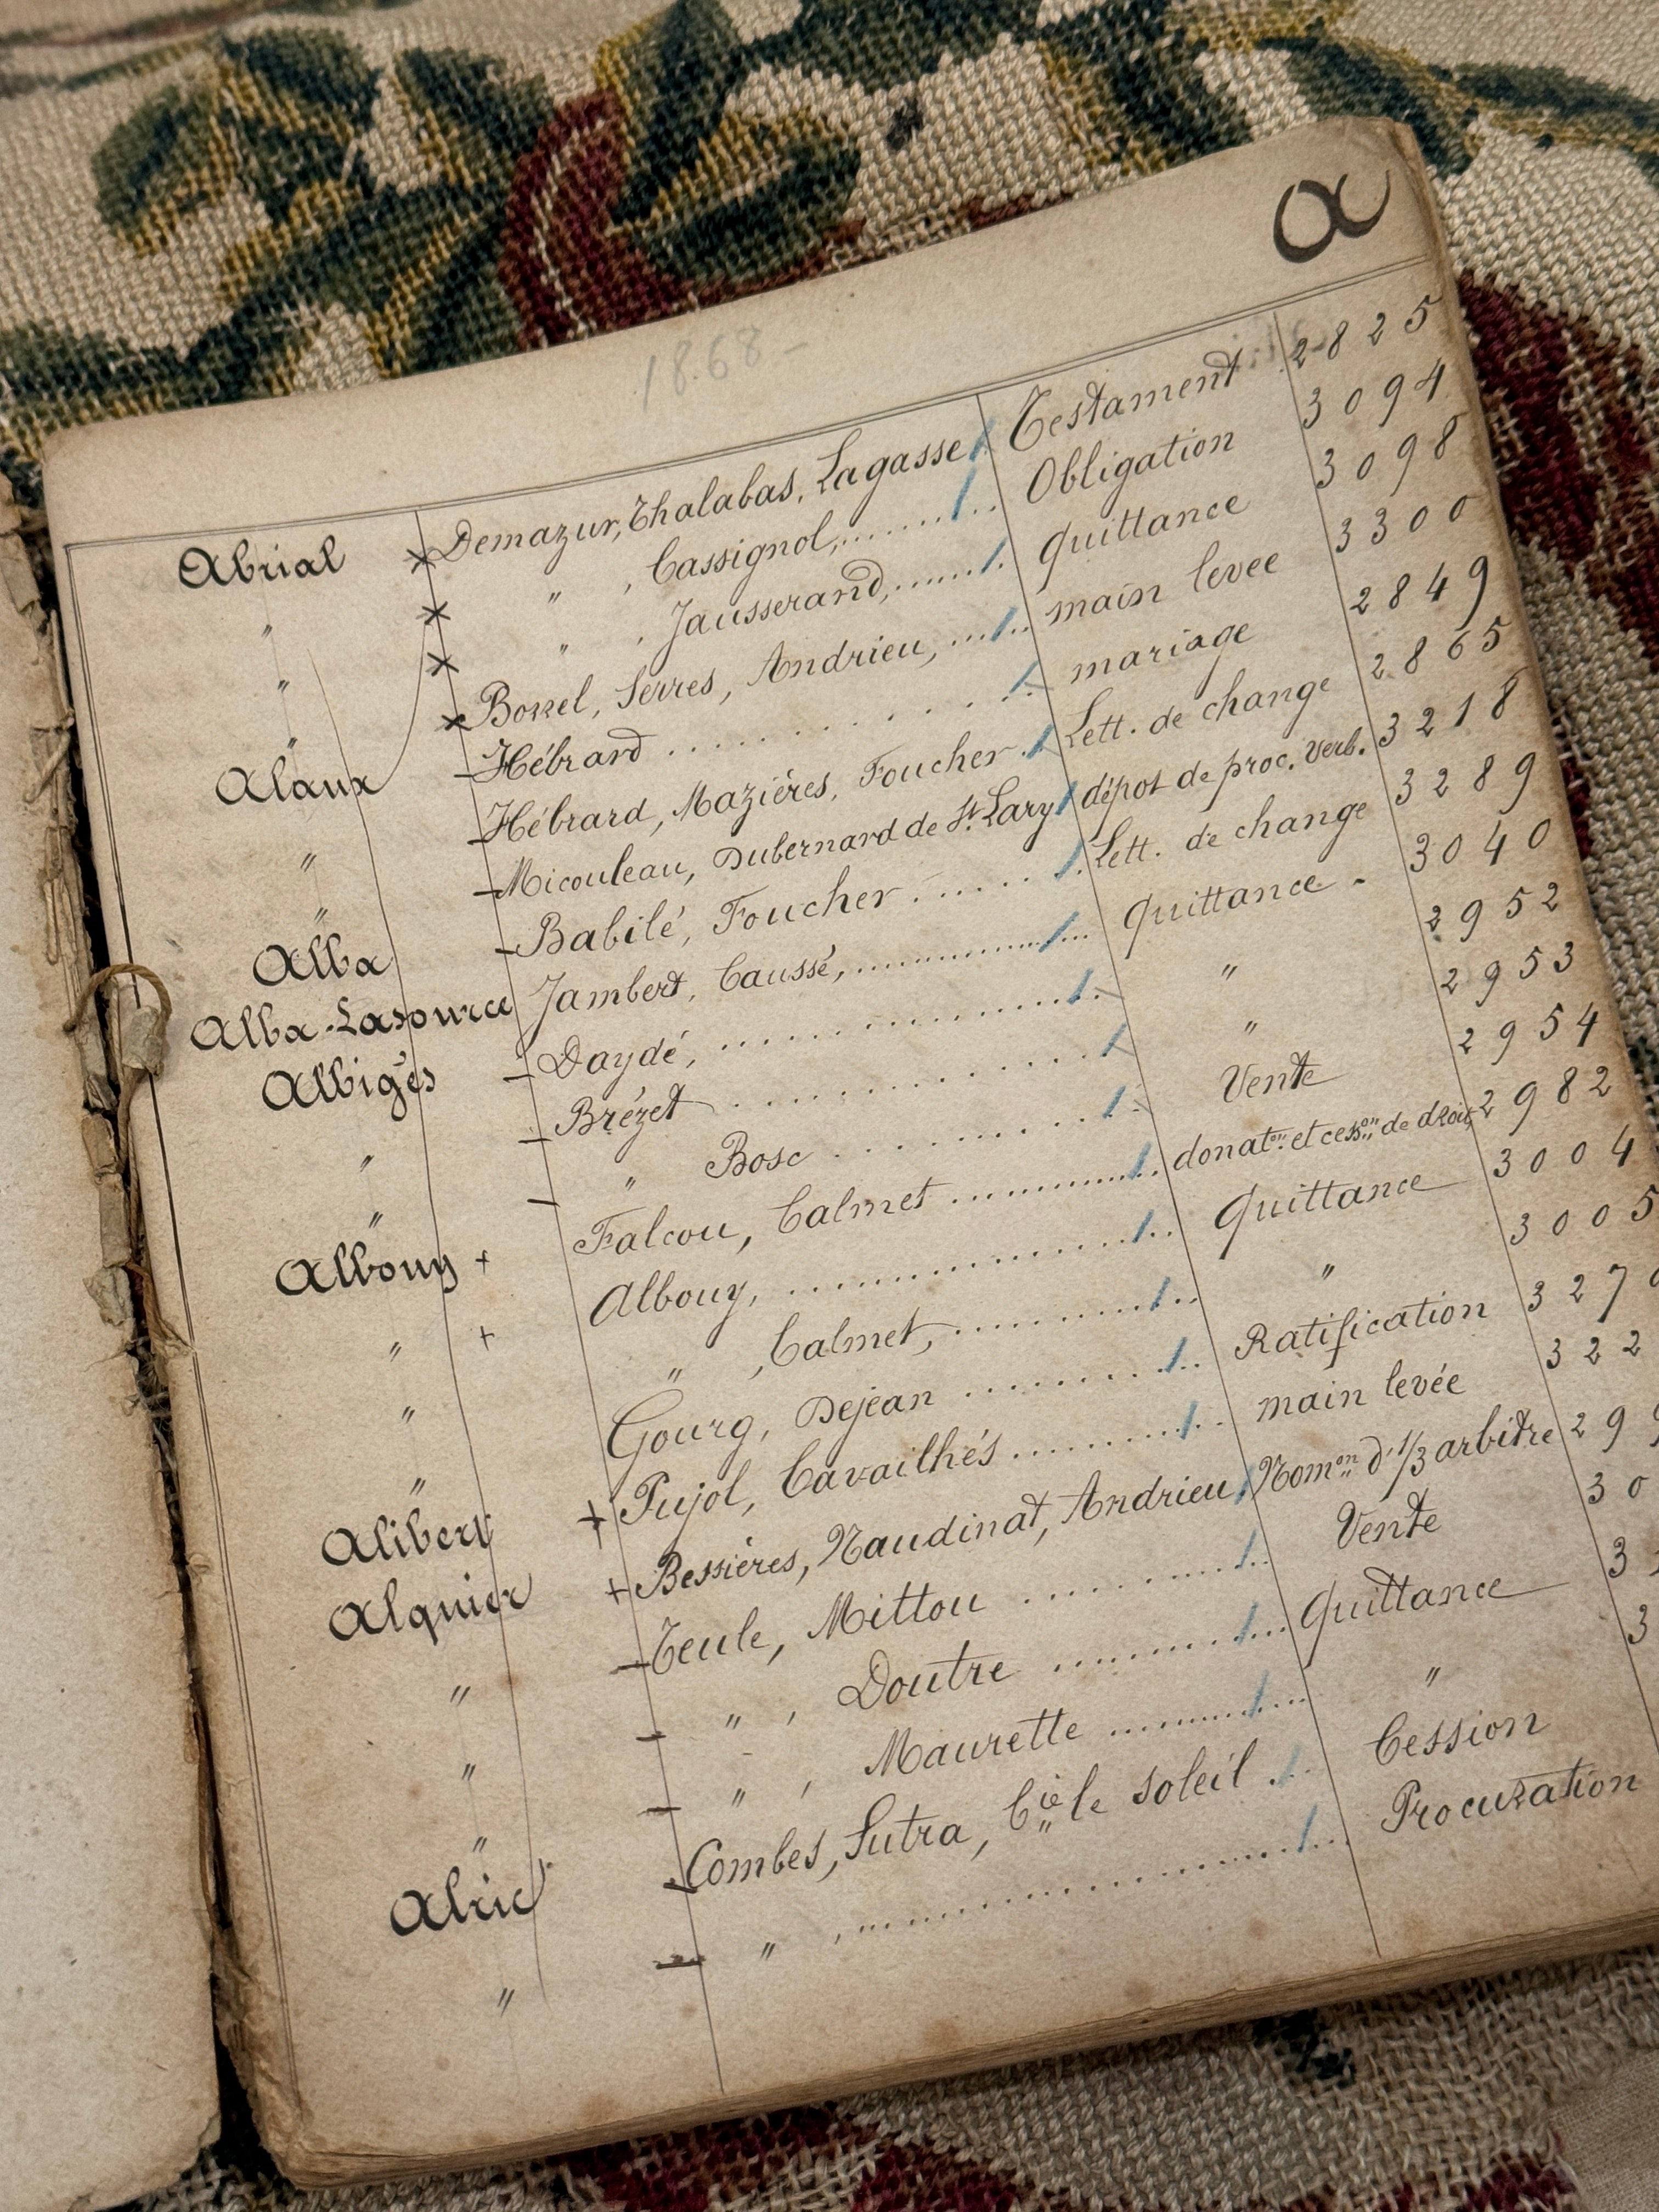 a
1868-
Abrial Demazur, Thalabas, Lagasse Testament 2825
" " , Cassignol, Obligation 3094
" " , Jausserand, Quittance 3098
" Borrel, Serres, Andrieu, main levée 3300
Alaux Hébrard mariage 2849
" Hébrard, Mazières, Foucher Lett. de change 2865
" Micouleau, Dubernard de St. Lary dépot de proc. verb. 3218
Alba Babilé, Foucher Lett. de change 3289
Alba-Lasource Jambert, Caussé, Quittance 3040
Albigès Daydé, " 2952
" Brézet " 2953
" " Bosc Vente 2954
Albouy + Falcou, Calmet donaton et cesson de droits 2982
" + Albouy, Quittance 3004
" " , Calmet, " 3005
" Gourg, Dejean Ratification 327
Alibert Pujol, Cavailhés main levée 322
Alquier Bessières, Naudinat, Andrieu Nomon d'1/3 arbitre 299
" Teule, Mittou Vente 30
" " , Doutre Quittance 3
" " , Maurette " 3
Alric Combes, Sutra, Cie le Soleil Cession
" " , Procuration